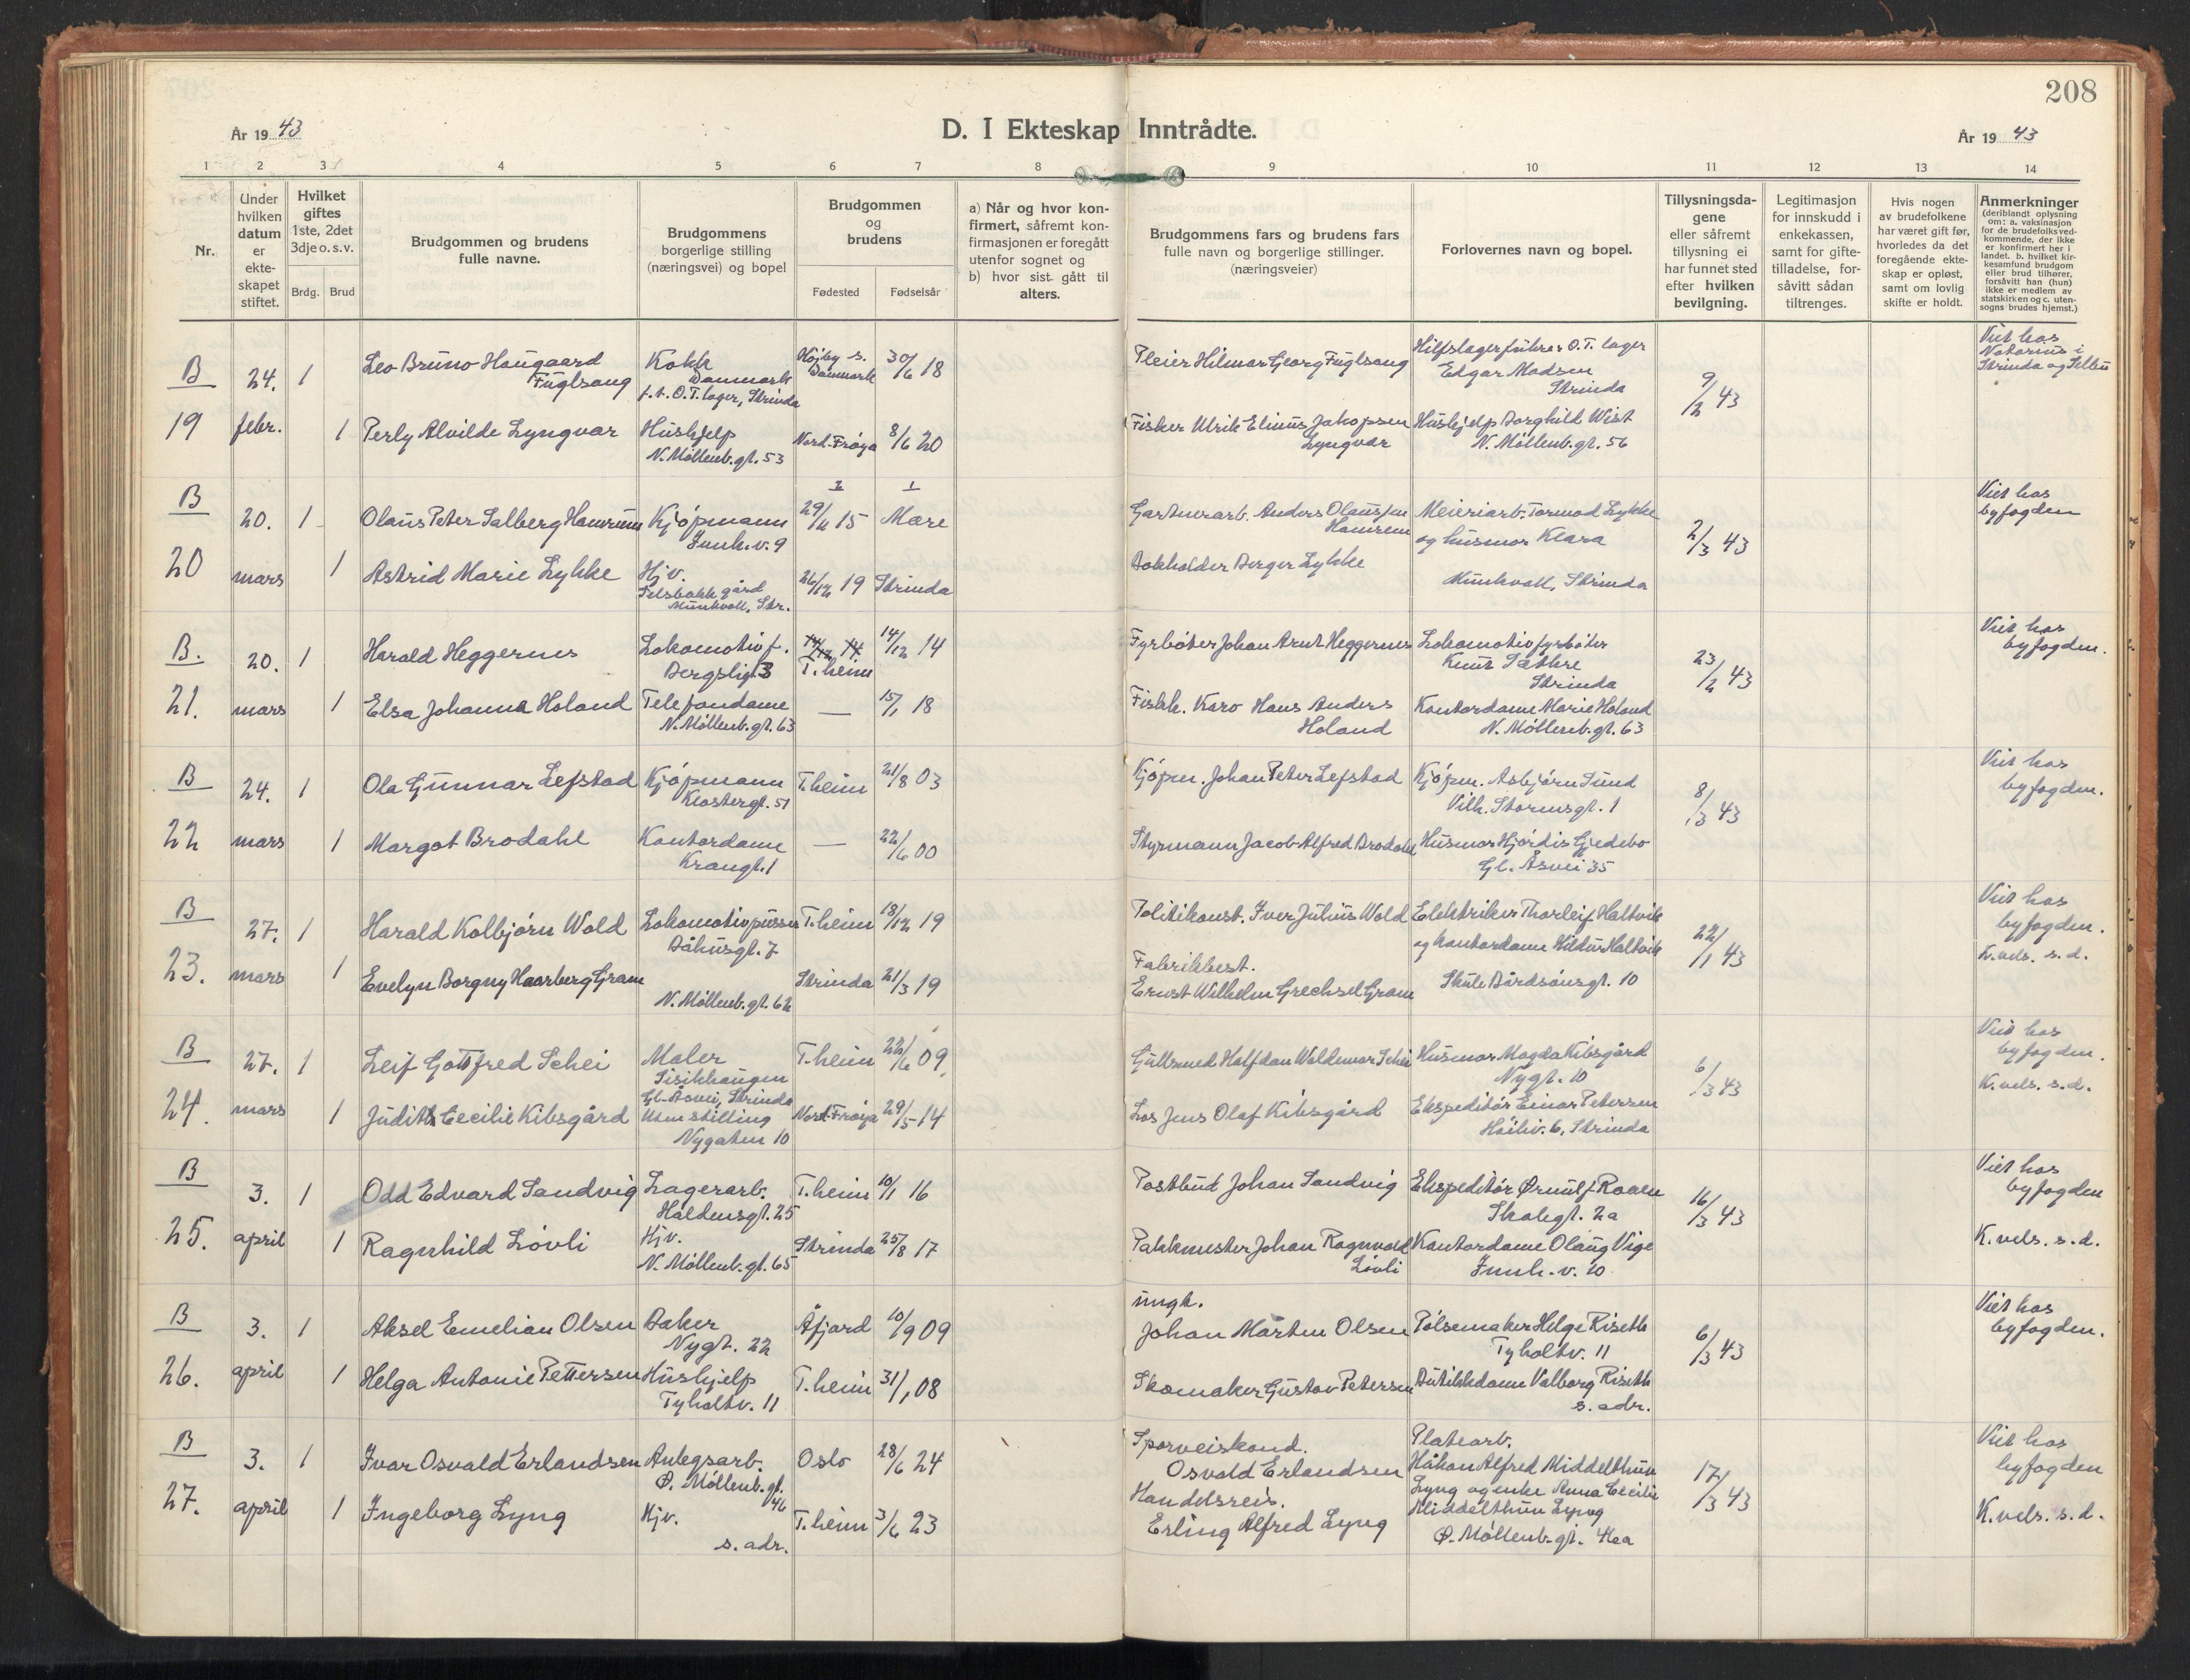 208
År 19 43
D. I Ekteskap Inntrådte.
År 19 43
1 2 3 4 5 6 7 8 9 10 11 12 13 14
Nr.
Under hvilken datum er ekte-skapet stiftet.
Hvilket giftes 1ste, 2det 3dje o. s. v.
Brdg. Brud
Brudgommen og brudens fulle navne.
Brudgommens borgerlige stilling (næringsvei) og bopel
Brudgommen og brudens
Fødested Fødselsår
a) Når og hvor kon-firmert, såfremt kon-firmasjonen er foregått utenfor sognet og
b) hvor sist gått til alters.
Brudgommens fars og brudens fars fulle navn og borgerlige stillinger. (næringsveier)
Forlovernes navn og bopel.
Tillysningsda-gene eller såfremt tillysning ei har funnet sted efter hvilken bevilgning.
Legitimasjon for innskudd i enkekassen, samt for gifte-tilladelse, for-såvitt sådan tiltrenges.
Hvis nogen av brudefolkene har været gift før, hvorledes da det foregående ekte-skap er opløst, samt om lovlig skifte er holdt.
Anmerkninger (deriblandt oplysning om: a. vaksinasjon for de brudefolks ved-kommende, der ikke er konfirmert her i landet. b. hvilket kir-kesamfund brudgom eller brud tilhører, forsåvitt han (hun) ikke er medlem av statskirken og c. uten-sogns brudes hjemst.)
B 24. 1 Leo Bruno Haugaard Fuglsang Kokk Danmark f.t. O.T. lager, Strinda Højby s. Danmark 30/6 18 Pleier Hilmar Georg Fuglsang Hilfslagerführer O.T. lager Edgar Madsen Strinda 9/2 43 Viet hos Notarius i Strinda og Selbu
19 febr. 1 Perly Alvilde Lyngvar Hushjelp N. Möllenb.gt. 53 Nord-Frøya 8/6 20 Fisker Ulrik Elinus Jakopsen Lyngvar Hushjelp Borghild Wist N. Möllenb.gt. 56
B 20. 1 Olaus Peter Salberg Hamrum Kjøpmann Innh.v. 9 2 1 29/11 15 Mære Gartnerarb. Anders Olaussen Hamrem Meieriarb. Tormod Lykke og husmor Klara 2/3 43 Viet hos byfogden
20 mars 1 Astrid Marie Lykke Hjv. Selsbakk gård Munkvoll, Str. 26/12 19 Strinda Bokholder Berger Lykke Munkvoll, Strinda
B. 20. 1 Harald Heggernes Lokomotivf. Bergsligt. 3 T.heim 14/12 14 Fyrbøter Johan Arnt Heggernes Lokomotivfyrbøter Knut Sæthre Strinda 23/2 43 Viet hos byfogden.
21. mars 1 Elsa Johanna Holand Telefondame N. Möllenb.gt. 63 — 15/1 18 Fiskh. Karo Hans Anders Holand Kontordame Marie Holand N. Möllenb.gt. 63
B 24. 1 Ola Gunnar Lefstad Kjøpmann Klostergt. 51 T.heim 21/8 03 Kjøpm. Johan Peter Lefstad Kjøpm. Asbjørn Sund Vilh. Stormsgt. 1 8/3 43 Viet hos byfogden.
22 mars 1 Margot Brodahl Kontordame Krangt. 1 — 22/6 00 Styrmann Jacob Alfred Brodahl Husmor Hjørdis Gjedebo Gl. Åsvei 35
B 27. 1 Harald Kolbjørn Wold Lokomotivpusser Båhusgt. 7 T.heim 18/12 19 Politikonst. Iver Julius Wold Elektriker Thorleif Haltvik og kontordame Hildur Haltvik 22/1 43 Viet hos byfogden.
23. mars 1 Evelyn Borgny Haarberg Gram N. Möllenb.gt. 62 Strinda 21/3 19 Fabrikbest. Ernst Wilhelm Grechsel Gram Skule Bårdsönsgt. 10 K.vels. s.d.
B 27. 1 Leif Gottfred Schei Maler Sisikhaugen Gl. Åsvei, Strinda T.heim 22/6 09 Gullsmed Halfdan Waldemar Schei Husmor Magda Kibsgård Nygt. 10 6/3 43 Viet hos byfogden.
24. mars 1 Judith Cecilie Kibsgård Uten stilling Nygaten 10 Nord-Frøya 29/5 14 Los Jens Olaf Kibsgård Ekspeditör Einar Petersen Höiliv. 6, Strinda K.vels. s.d.
B 3. 1 Odd Edvard Sandvig Lagerarb. Haldensgt. 25 T.heim 10/1 16 Postbud Johan Sandvig Ekspeditör Ørnulf Raaen Skolegt. 2a 16/3 43 Viet hos byfogden
25. april 1 Ragnhild Lövli Hjv. N. Möllenb.gt. 65 Strinda 25/8 17 Pakkmester Johan Ragnvald Lövli Kontordame Olaug Vige Innh.v. 10 K.vels. s.d.
B 3. 1 Aksel Emelian Olsen Baker Nygt. 22 Åfjord 10/9 09 ungk. Johan Mårten Olsen Pölsemaker Helge Riseth Tyholtv. 11 6/3 43 Viet hos byfogden.
26. april 1 Helga Antonie Pettersen Hushjelp Tyholtv. 11 T.heim 31/1 08 Skomaker Gustav Petersen Butikkdame Valborg Riseth s. adr.
B 3. 1 Ivar Osvald Erlandsen Anlegsarb. Ø. Möllenb.gt. 46 Oslo 28/6 24 Sporveiskond. Osvald Erlandsen Platearb. Håkon Alfred Middelthun Lyng og enke Anna Cecilie Middelthun Lyng Ø. Möllenb.gt. 42a 17/3 43 Viet hos byfogden
27. april 1 Ingeborg Lyng Hjv. s. adr. T.heim 3/6 23 Handelsreis. Erling Alfred Lyng K.vels. s.d.